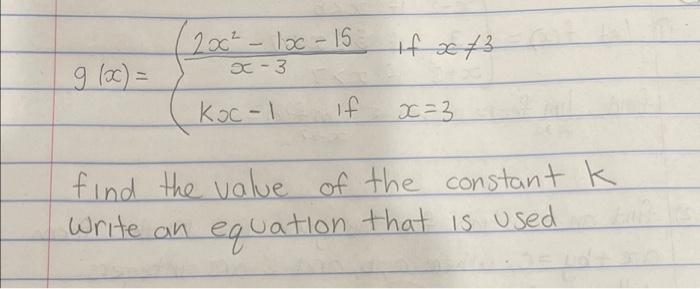 g(x) = { 2x² - 1x - 15 / x - 3 if x ≠ 3
kx - 1 if x = 3
find the value of the constant k
Write an equation that is used